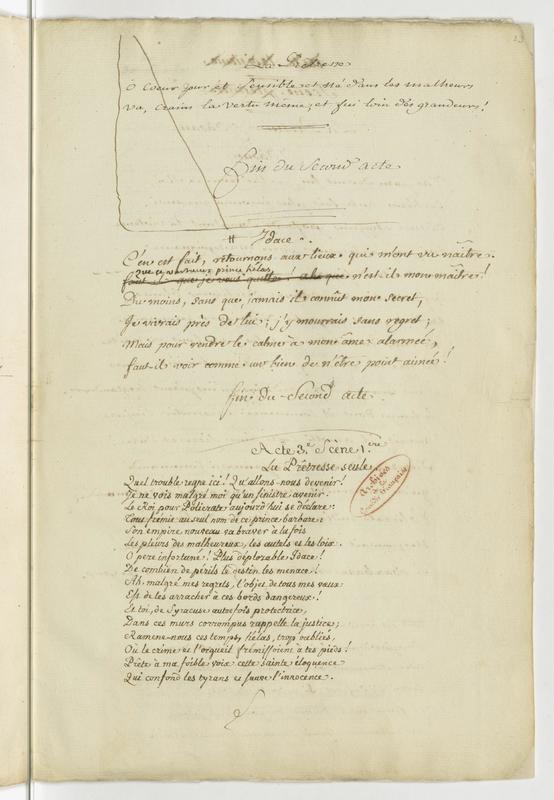 La Prêtresse
ô Coeur pur et sensible et né dans les malheurs
va, crains la vertu même; et fui loin des grandeurs!
Fin du second acte
# Idace.
C'en est fait, retournons aux lieux qui m'ont vu naître.
que ce vertueux prince hélas,
faut-il que je vous quitte! ah que n'est-il mon maître!
Du moins, sans que jamais il connût mon secret,
Je vivrais près de lui; j'y mourrais sans regret;
Mais pour rendre le calme à mon âme alarmée,
faut-il voir comme un bien de n'être point aimée!
fin du Second acte
Acte 3.e Scène 1.ère
La Prêtresse seule.
Quel trouble regne ici! Qu'allons-nous devenir!
Je ne vois malgré moi qu'un sinistre avenir.
Le Roi pour Policrate aujourd'hui se déclare:
Tout frémit au seul nom de ce prince barbare:
Son empire nouveau va braver à la fois
Les pleurs des malheureux, les autels et les loix.
O pere infortuné! Plus déplorable Idace!
De combien de périls le destin les menace!
Ah, malgré mes regrets, l'objet de tous mes vœux
Est de les arracher à ces bords dangereux!
Et toi, de Syracuse autrefois protectrice,
Dans ces murs corrompus rappelle la justice;
Ramene-nous ces temps, hélas, trop oubliés,
Où le crime et l'orgueil frémissoient à tes pieds!
Prête à ma foible voix cette sainte éloquence
Qui confond les tyrans et sauve l'innocence.
Archives
de la
Comédie Française